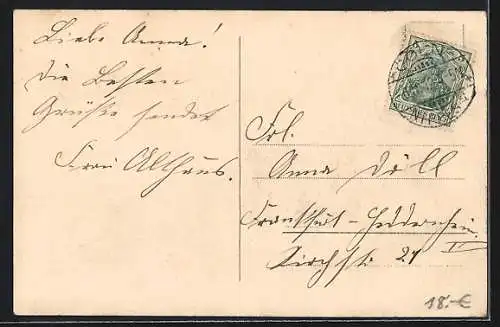 Liebe Anna!
Die Besten
Grüße sendet
Frau Althaus.
Frl.
Anna Döll
Frankfurt-Heddernheim
Kirchstr 21
IV
18.-€